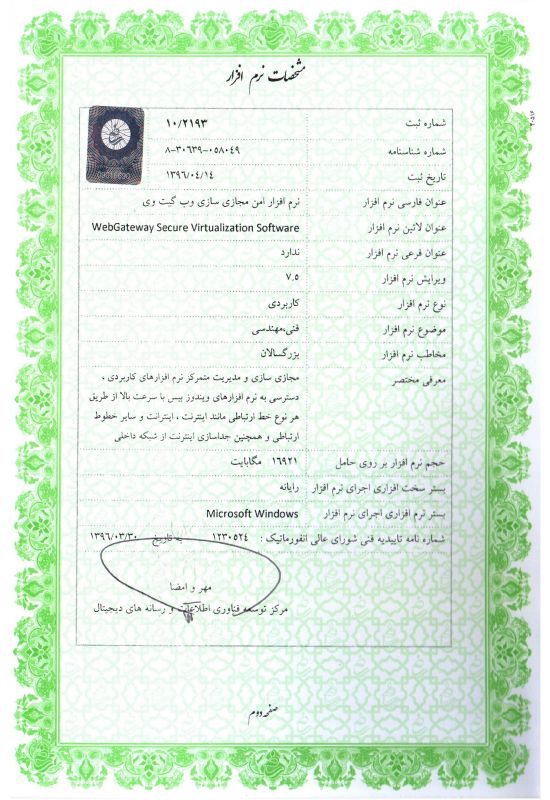 مشخصات نرم افزار
شماره ثبت ۱۰/۲۱۹۳
شماره شناسنامه ۸-۳۰۶۳۹-۰۵۸۰۴۹
تاریخ ثبت ۱۳۹۶/۰۴/۱۴
عنوان فارسی نرم افزار نرم افزار امن مجازی سازی وب گیت وی
عنوان لاتین نرم افزار WebGateway Secure Virtualization Software
عنوان فرعی نرم افزار ندارد
ویرایش نرم افزار ۷.۵
نوع نرم افزار کاربردی
موضوع نرم افزار فنی،مهندسی
مخاطب نرم افزار بزرگسالان
معرفی مختصر مجازی سازی و مدیریت متمرکز نرم افزارهای کاربردی ،
دسترسی به نرم افزارهای ویندوز بیس با سرعت بالا از طریق
هر نوع خط ارتباطی مانند اینترنت ، اینترانت و سایر خطوط
ارتباطی و همچنین جداسازی اینترنت از شبکه داخلی
حجم نرم افزار بر روی حامل ۱۶۹۲۱ مگابایت
بستر سخت افزاری اجرای نرم افزار رایانه
بستر نرم افزاری اجرای نرم افزار Microsoft Windows
شماره نامه تاییدیه فنی شورای عالی انفورماتیک : ۱۲۳۰۵۲۴ به تاریخ ۱۳۹۶/۰۳/۳۰
مهر و امضا
مرکز توسعه فناوری اطلاعات و رسانه های دیجیتال
صفحه دوم